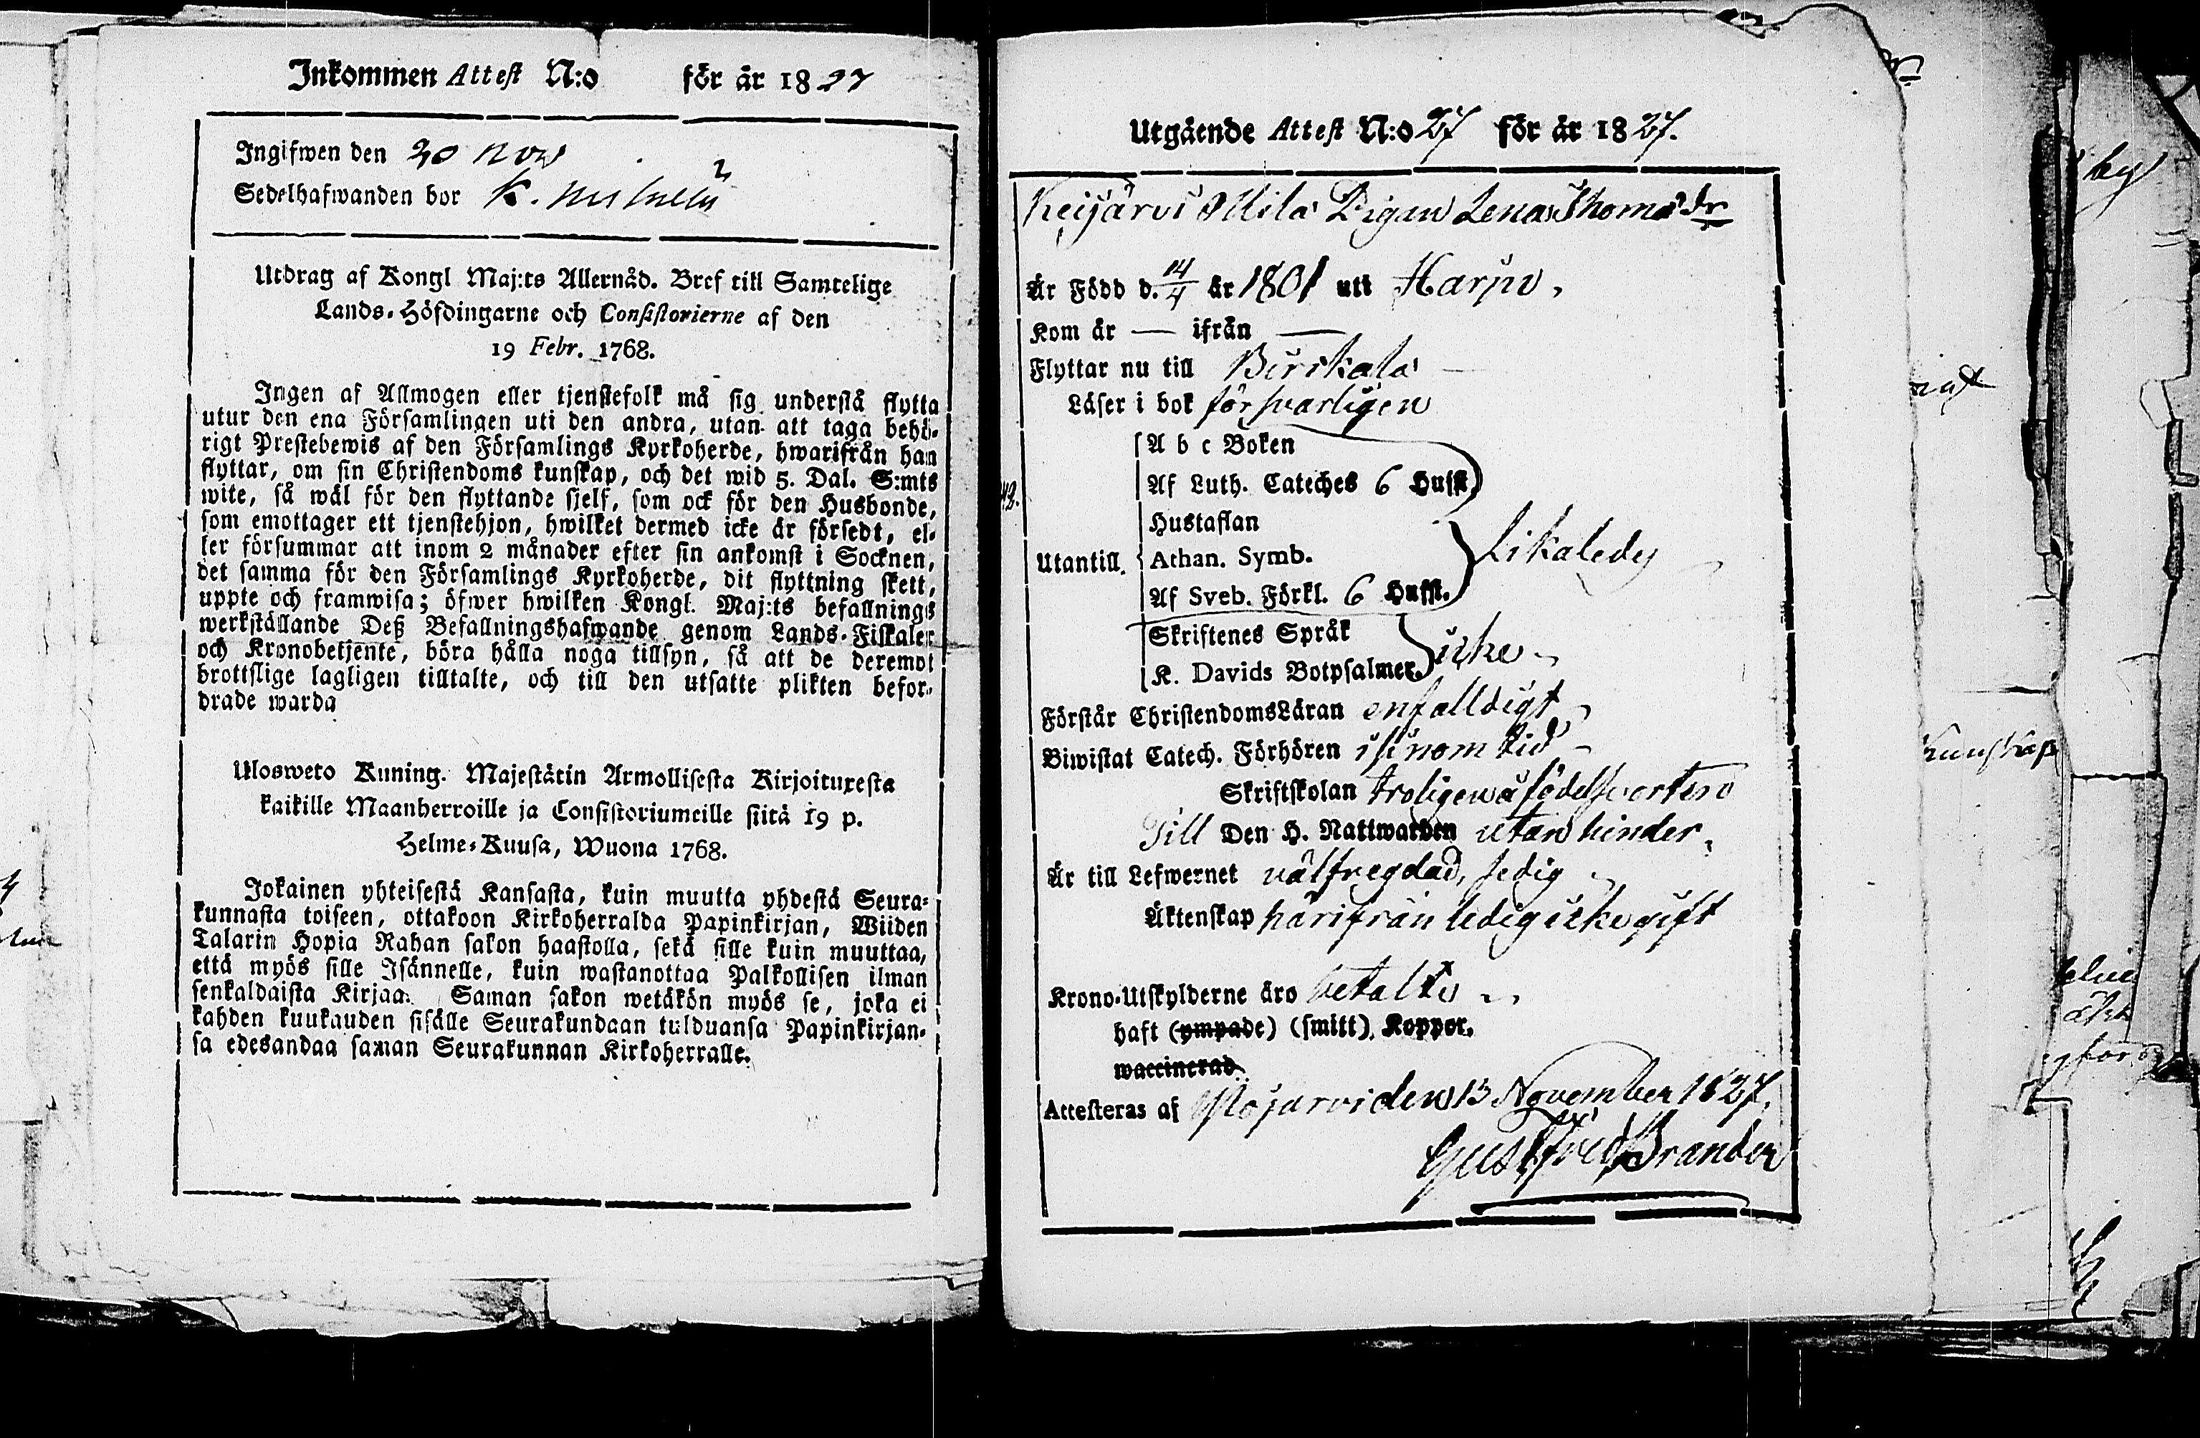 Inkommen Attest N:o för år 1827
Ingifwen den 20 Nov
Sedelhafwanden bor K.
Utdrag af Kongl Maj:ts Allernåd. Bref till Samtelige
Lands-Höfdingarne och Consistorierne af den
19 Febr. 1768.
Ingen af Allmogen eller tjenstefolk må sig understå flytta
utur den ena Församlingen uti den andra, utan att taga behö-
rigt Prestebewis af den Församlings Kyrkoherde, hwarifrån han
flyttar, om sin Christendoms kunskap, och det wid 5. Dal. S:mts
wite, så wäl för den flyttande sjelf, som ock för den Husbonde,
som emottager ett tjenstehjon, hwilket dermed icke är försedt, el-
ler försummar att inom 2 månader efter sin ankomst i Socknen,
det samma för den Församlings Kyrkoherde, dit flyttning skett,
uppte och framwisa; öfwer hwilken Kongl. Maj:ts befallnings
werkställande Deß Befallningshafwande genom Lands-Fiskaler
och Kronobetjente, böra hålla noga tillsyn, så att de deremot
brottslige lagligen tilltalte, och till den utsatte plikten befor-
drade warda
Ulosweto Kuning. Majestätin Armollisesta Kirjoituxesta
kaikille Maanherroille ja Consistoriumeille siitä 19 p.
Helme-Kuusa, Wuona 1768.
Jokainen yhteisestä Kansasta, kuin muutta yhdestä Seura-
kunnasta toiseen, ottakoon Kirkoherralda Papinkirjan, Wiiden
Talarin Hopia Rahan sakon haastolla, sekä sille kuin muuttaa,
että myös sille Isännelle, kuin wastanottaa Palkollisen ilman
senkaldaista Kirjaa. Saman sakon wetäkön myös se, joka ei
kahden kuukauden sisälle Seurakundaan tulduansa Papinkirjan-
sa edesandaa saman Seurakunnan Kirkoherralle.
Utgående Attest N:o 27 för år 1827.
Keijärvi Mila Pigan Lena Thomasdr
Är Född d. 14/4 år 1801 uti Harju,
Kom år — ifrån —
Flyttar nu till Birkala
Läser i bok försvarligen
A b c Boken
Af Luth. Cateches 6 Hufst.
Hustaflan
Utantill. Athan. Symb. Likaledes
Af Sveb. Förkl. 6 Hufst.
Skriftenes Språk
K. Davids Botpsalmer. icke
Förstår ChristendomsLäran enfalldigt
Biwistat Catech. Förhören i sinom tid
Skriftskolan troligen å födelseorten
Till Den H. Nattwarden utan hinder,
Är till Lefwernet välfregdad, sedig
Äktenskap härifrån ledig icke gift
Krono-Utskylderne äro betalte
haft (ympade) (smitt). Koppor.
waccinerad
Attesteras af Ylöjärvi den 13 November 1827,
Gust Fred Brander